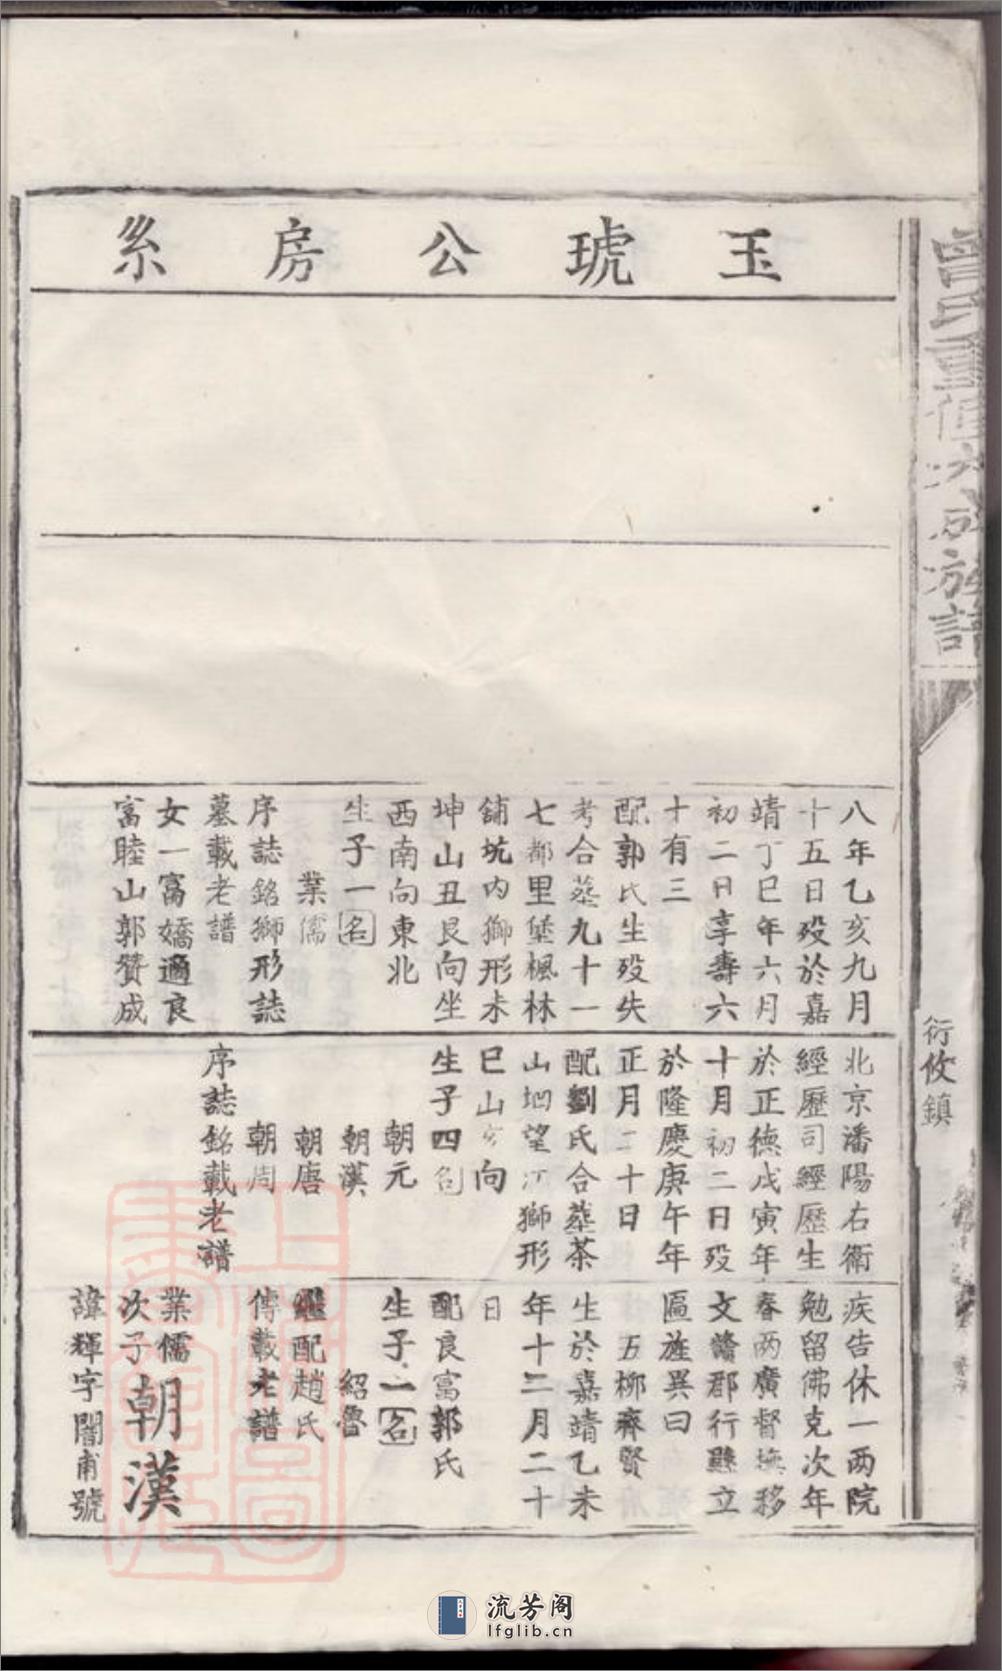 曾氏重修大成族譜
衍攸鎮
玉琥公房系
八年乙亥九月
十五日歿於嘉
靖丁巳年六月
初二日享壽六
十有三
配郭氏生歿失
考合塟九十一
七都里堡楓林
舖坑内獅形未
坤山丑艮向坐
西南向東北
生子一名
業儒
序誌銘獅形誌
墓載老譜
女一富嬌適良
富睦山郭贊成
北京潘陽右衛
經歷司經歷生
於正德戊寅年
十月初二日歿
於隆慶庚午年
正月二十日
配劉氏合塟茶
山坳望江獅形
巳山亥向
生子四名
朝元
朝漢
朝唐
朝周
序誌銘載老譜
疾告休一两院
勉留佛克次年
春两廣督撫移
文贛郡行縣立
區旌異曰
五柳齊賢
生於嘉靖乙未
年十二月二十
日
配良富郭氏
生子一名
紹魯
繼配趙氏
傳載老譜
業儒
次子朝漢
諱輝字闇甫號
流芳阁
lfglib.cn